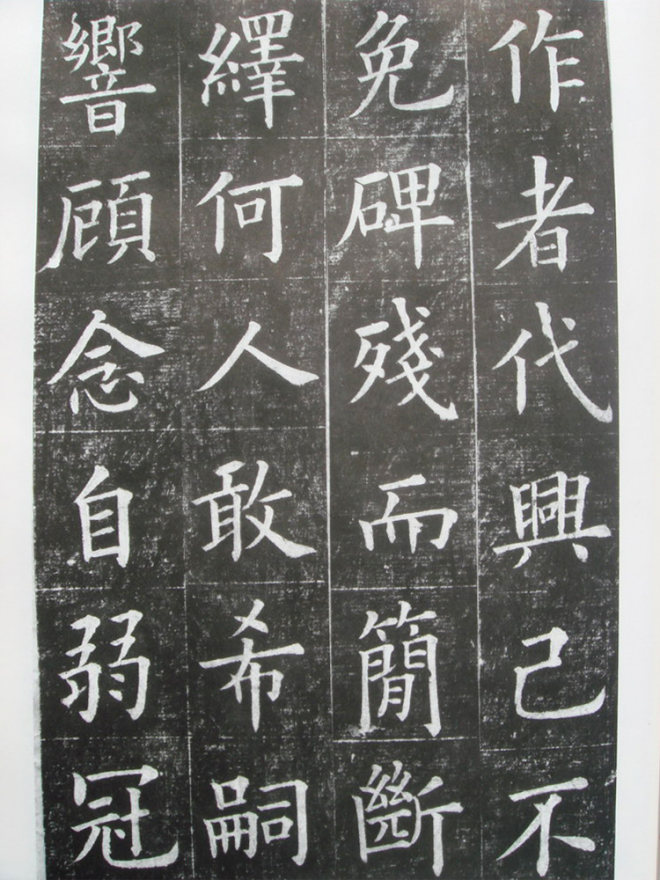 作者代興己不
免碑殘而簡斷
繹何人敢希嗣
響顧念自弱冠